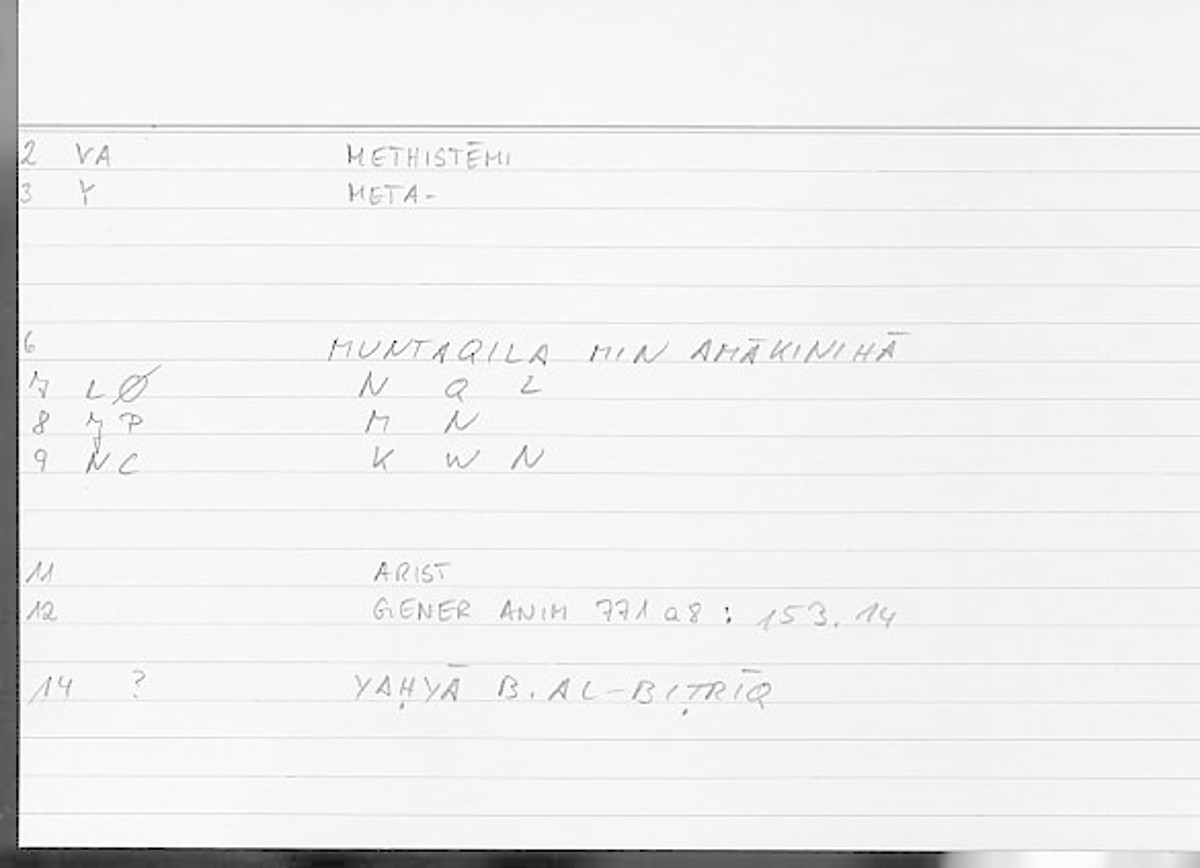 2 VA METHISTĒMI
3 Y META-
6 MUNTAQILA MIN AMĀKINIHĀ
7 LØ N Q L
8 JP M N
9 NC K W N
11 ARIST
12 GENER ANIM 771 a8 : 153.14
14 ? YAḤYĀ B. AL-BIṬRĪQ